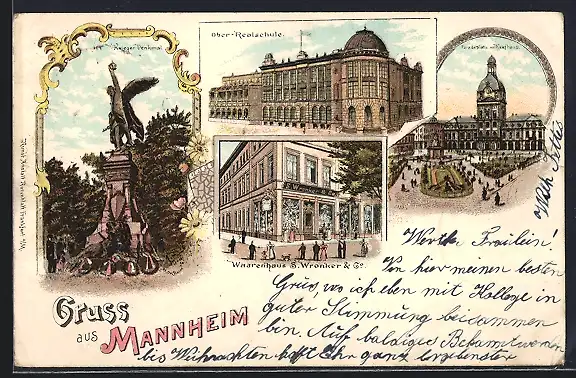 Krieger Denkmal
Ober-Realschule.
Paradeplatz m. Kaufhaus.
S. Wronker & Co.
Waarenhaus S. Wronker & Co.
Gruss
aus MANNHEIM
Werthe Fräulein!
Von hier meinen besten
Grüs, wo ich eben mit Kollege in
guter Stimmung beisammen
bin. Auf baldiges Bekanntwerden
bis Weihnachten hofft Ihr ganz ergebenster
Wilh.